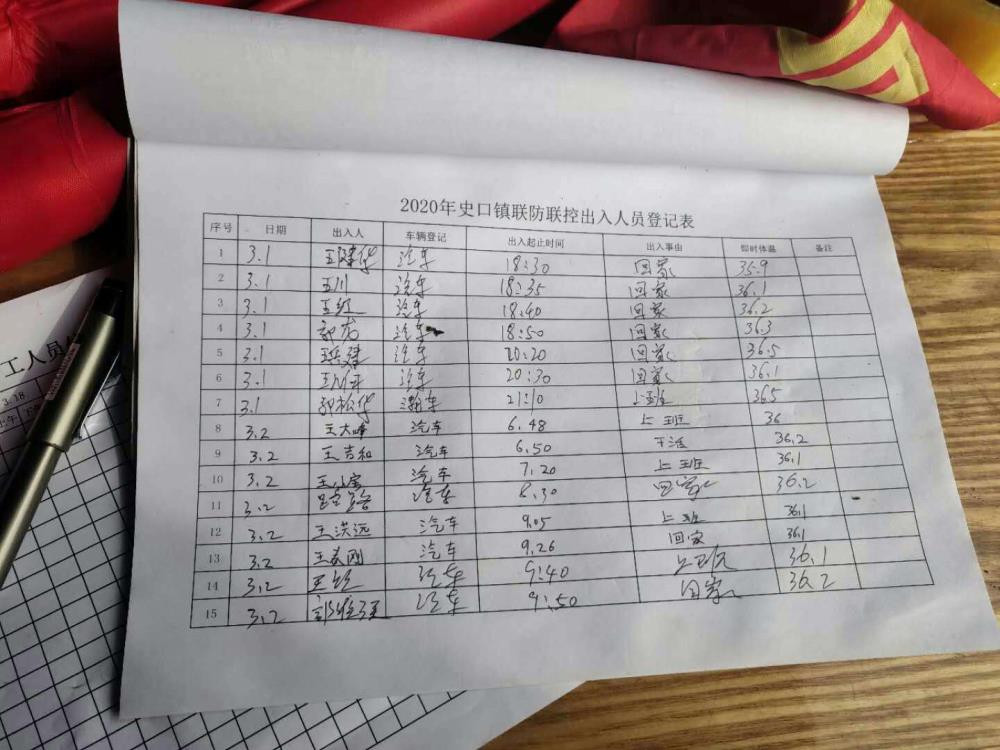 2020年史口镇联防联控出入人员登记表
序号 日期 出入人 车辆登记 出入起止时间 出入事由 即时体温 备注
1 3.1 王建华 汽车 18:30 回家 35.9
2 3.1 王川 汽车 18:35 回家 36.1
3 3.1 王红 汽车 18:40 回家 36.2
4 3.1 郭龙 汽车 18:50 回家 36.3
5 3.1 汽车 20:20 回家 36.5
6 3.1 汽车 20:30 回家 36.1
7 3.1 郭松华 车 21:10 上班 36.5
8 3.2 王大峰 汽车 6.48 上班 36
9 3.2 王吉和 汽车 6.50 干活 36.2
10 3.2 王小宝 汽车 7.20 上班 36.1
11 3.2 汽车 8.30 回家 36.2
12 3.2 王洪远 汽车 9.05 上班 36.1
13 3.2 王春刚 汽车 9.26 回家 36.1
14 3.2 汽车 9:40 上班 36.1
15 3.2 汽车 9:50 回家 36.2
工人员
3.18